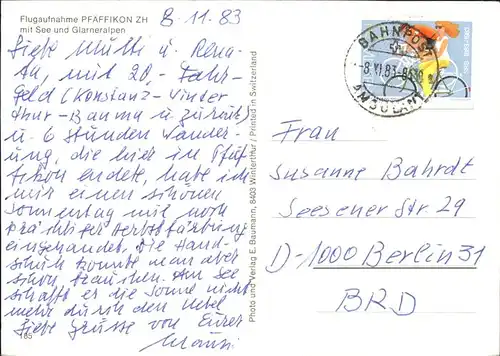 Flugaufnahme PFÄFFIKON ZH
mit See und Glarneralpen
8.11.83
Liebe Mutti u. Rena-
ta, mit 20,- Fahr-
geld (Konstanz-Winter
thur-Bauma u. zurück)
u. 6 Stunden Wander-
ung, die hier in Pfäf-
fikon endete, habe ich
mir einen schönen
Sonnentag mit noch
prächtiger Herbstfärbung
eingehandelt. Die Hand-
schuh konnte man aber
schon brauchen. Am See
schafft es die Sonne nicht
mehr durch den Nebel
Liebe Grüsse von Eurer
Mausi
165
Photo und Verlag E. Baumann, 8403 Winterthur / Printed in Switzerland
BAHNPOST
-8.XI.83
AMBULANT
Frau
Susanne Bahrdt
Seesener Str. 29
D-1000 Berlin 31
BRD